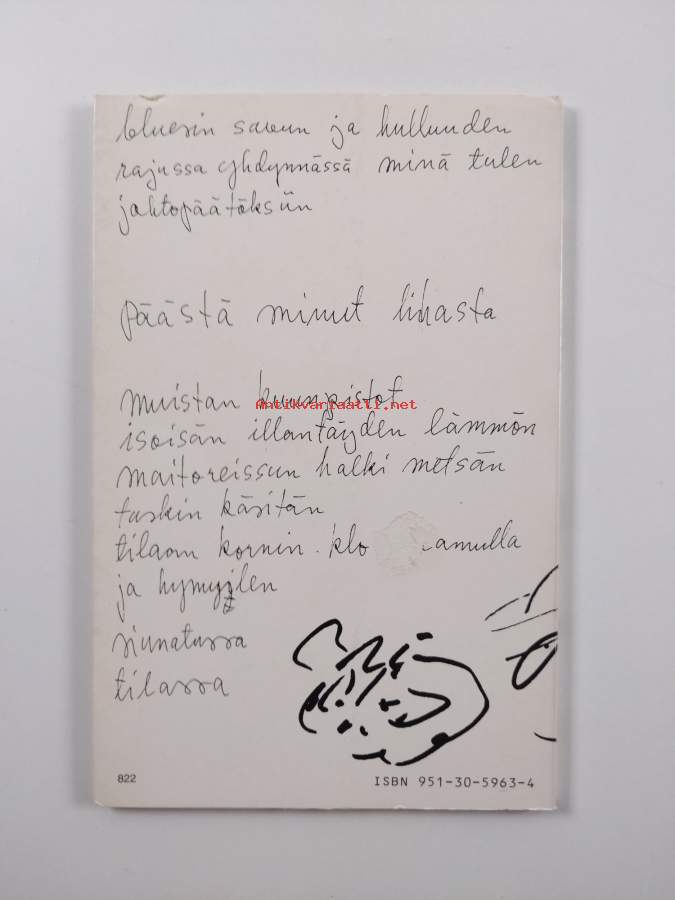 bluesin savun ja hulluuden
rajussa yhdynnässä minä tulen
johtopäätöksiin
päästä minut lihasta
muistan kuunpistot
Antikvariaatti.net
isoisän illantäyden lämmön
maitoreissun halki metsän
tuskin käsitän
tilaan kornin klo amulla
ja hymyilen
siunatussa
tilassa
822
ISBN 951-30-5963-4